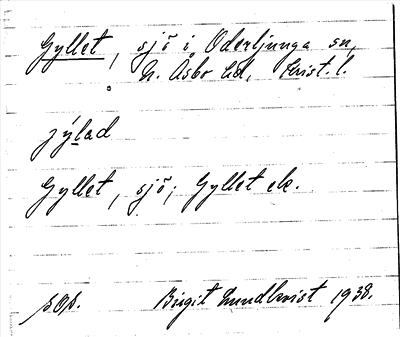 Gyllet, sjö i Oderljunga sn,
N. Åsbo hd, Krist. l.
jýlad
Gyllet, sjö; Gyllet ek.
s.O.s. Birgit Lundkvist 1938.